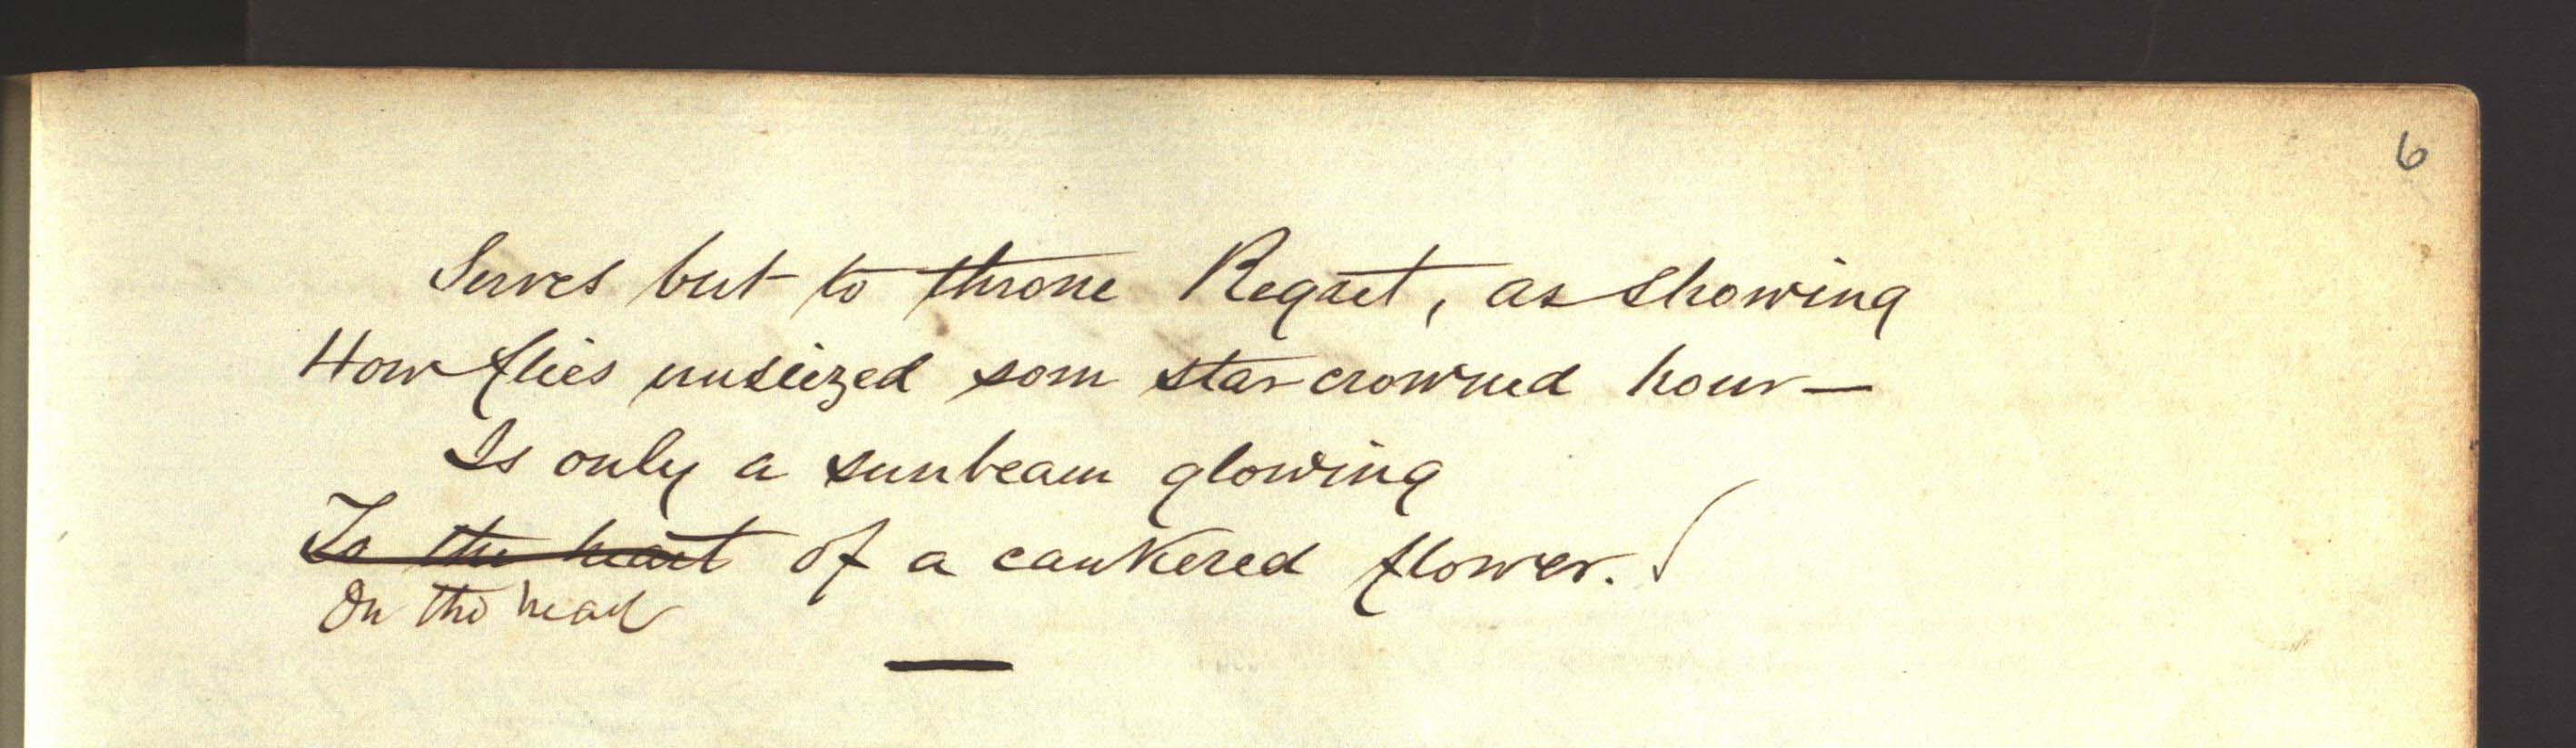 6
Serves but to throne Regret, as showing
How flies unseized som star crowned hour—
Is only a sunbeam glowing
To the heart of a cankered flower.
On the head